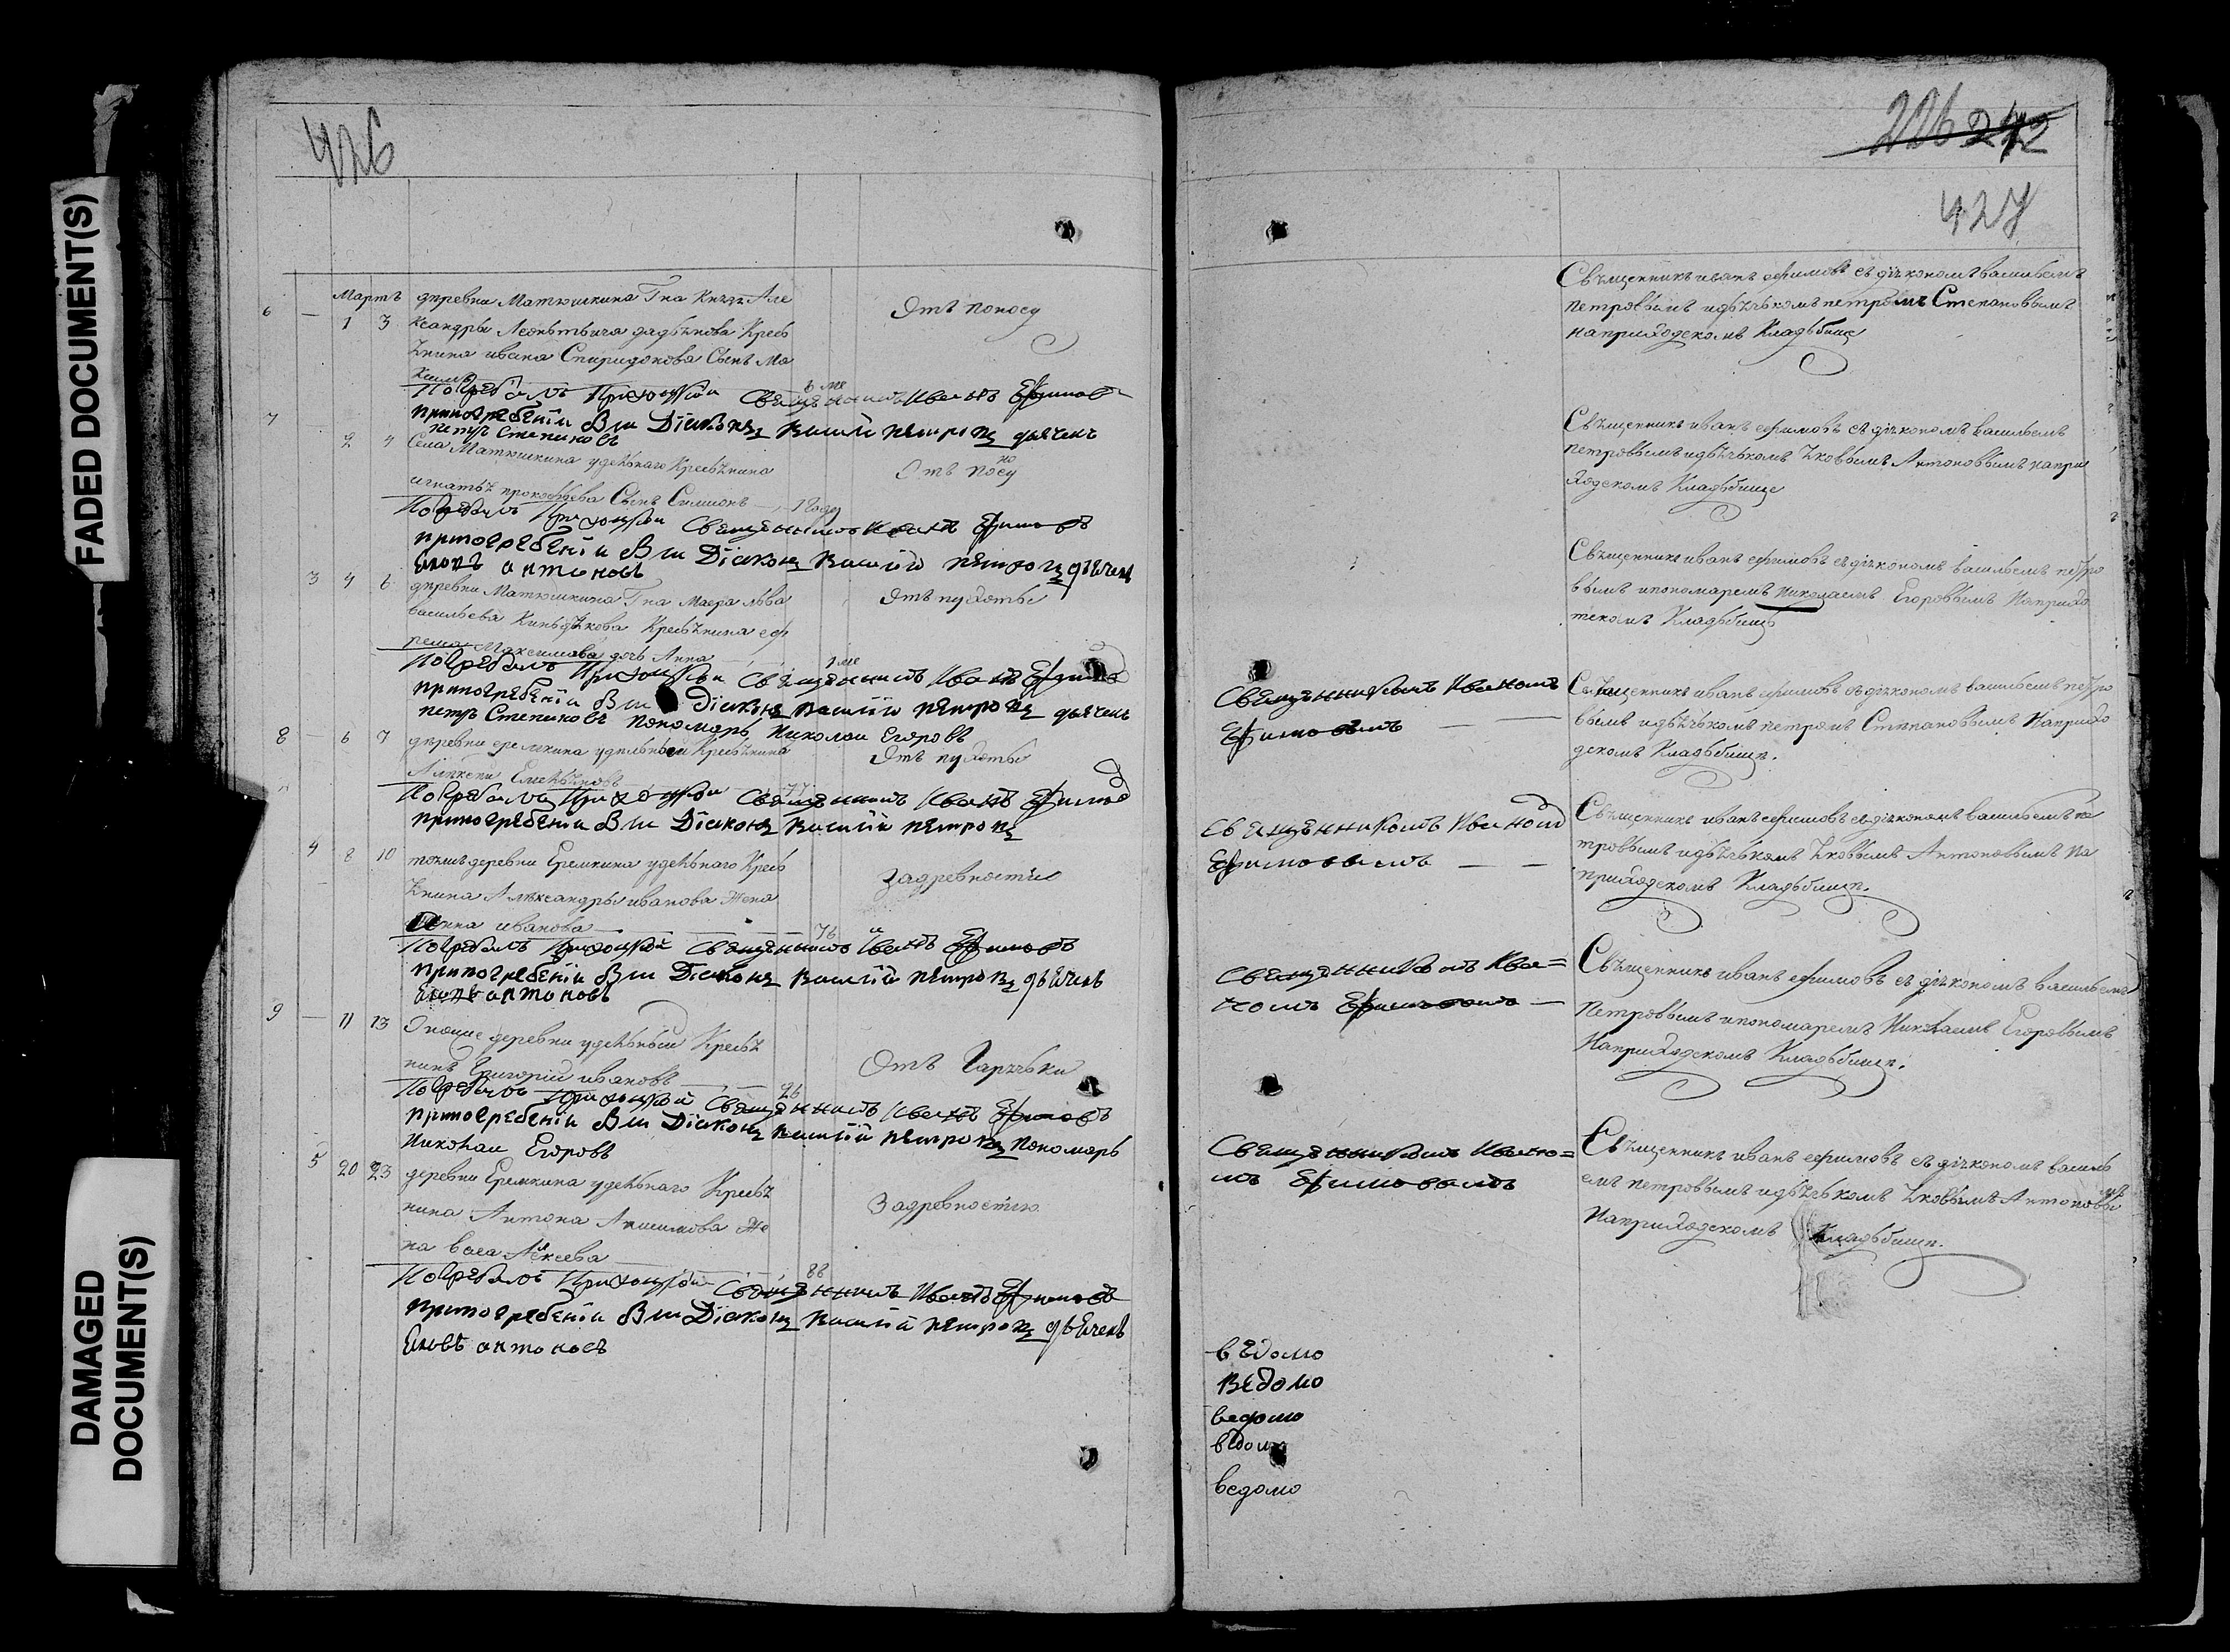 FADED DOCUMENT(S)
DAMAGED
DOCUMENT(S)
426
Мартъ
6 — 1 3
деревни Матюшкина Гна Князя Але
ксандры Леонтьвича крест
янина ивана Спиридонова Сынъ Ма
ксимъ
6 ме
Отъ поносу
Погребалъ Приходской Священникъ Иванъ Ефимовъ
припогребеніи был Діаконъ василій петровъ дьячекъ
петръ Степановъ
7 2 4
Села Матюшкина удельнаго Крестьянина
игнатья прокофьева Сынъ Симионъ — 1 года
Отъ поносу
Погребалъ Приходской Священникъ Иванъ Ефимовъ
припогребеніи был Діаконъ василій петровъ дьячекъ
яковъ антоновъ
3 4 6
деревни Матюшкина Гна Маера льва
васильева Крестьянина еф
рема Максимова дочь Анна
1 ме
Отъ пухоты
Погребалъ Приходской Священникъ Иванъ Ефимовъ
припогребеніи был Діаконъ василій петровъ дьячекъ
петръ Степановъ пономарь Николаи Егоровъ
8 — 6 7
деревни еремкина удельной Крестьянинъ
Алексей Емельяновъ
77
Отъ пухоты
Погребалъ Приходской Священникъ Иванъ Ефимовъ
припогребеніи был Діаконъ василій петровъ
4 8 10
тояже деревни Еремкина удельнаго Крест
янина Александры иванова Жена
Анна иванова
76
Задревностью
Погребалъ Приходской Священникъ Иванъ Ефимовъ
припогребеніи был Діаконъ василій петровъ дьячекъ
яковъ антоновъ
9 — 11 13
деревни удельный Крестья
нинъ Григорий ивановъ
26
Отъ Гарячьки
Погребалъ Приходской Священникъ Иванъ Ефимовъ
припогребеніи был Діаконъ василій петровъ пономарь
Николаи Егоровъ
5 20 23
деревни Еремкина удельнаго Крестья
нина Антона Анисимова Же
на васа Алексеева
88
Задревностью
Погребалъ Приходской Священникъ Иванъ Ефимовъ
припогребеніи был Діаконъ василій петровъ дьячекъ
яковъ антоновъ
226 242
427
Свѣщенникъ иванъ ефимовъ съ діякономъ васильемъ
петровымъ идьячькомъ петромъ Степановымъ
наприходскомъ Кладьбище
Свѣщенникъ иванъ ефимовъ съ діякономъ васильемъ
петровымъ идьячькомъ яковымъ Антоновымъ напри
ходскомъ Кладьбище
Свѣщенникъ иванъ ефимовъ съ діякономъ васильемъ петро
вымъ ипономаремъ Николаемъ Егоровымъ Наприхо
тскомъ Кладьбище
Священникомъ Иваномъ
Ефимовымъ — —
Свѣщенникъ иванъ ефимовъ съ діякономъ васильемъ петро
вымъ идьячькомъ петромъ Степановымъ Наприхо
дскомъ Кладьбище.
Священникомъ Иваномъ
Ефимовымъ — —
Свѣщенникъ иванъ ефимовъ съ діякономъ васильемъ пе
тровымъ идьячькомъ яковымъ Антоновымъ На
приходскомъ Кладьбище.
Священникомъ Ива=
номъ Ефимовымъ —
Свѣщенникъ иванъ ефимовъ съ діякономъ васильемъ
Петровымъ ипономаремъ Николаемъ Егоровымъ
Наприходскомъ Кладьбище.
Священникомъ Ивано=
мъ Ефимовымъ
Свѣщенникъ иванъ ефимовъ съ діякономъ василь
емъ петровымъ идьячькомъ яковымъ Антоновымъ
Наприходскомъ Кладьбище.
вѣдомо
вѣдомо
ведомо
вѣдомо
ведомо